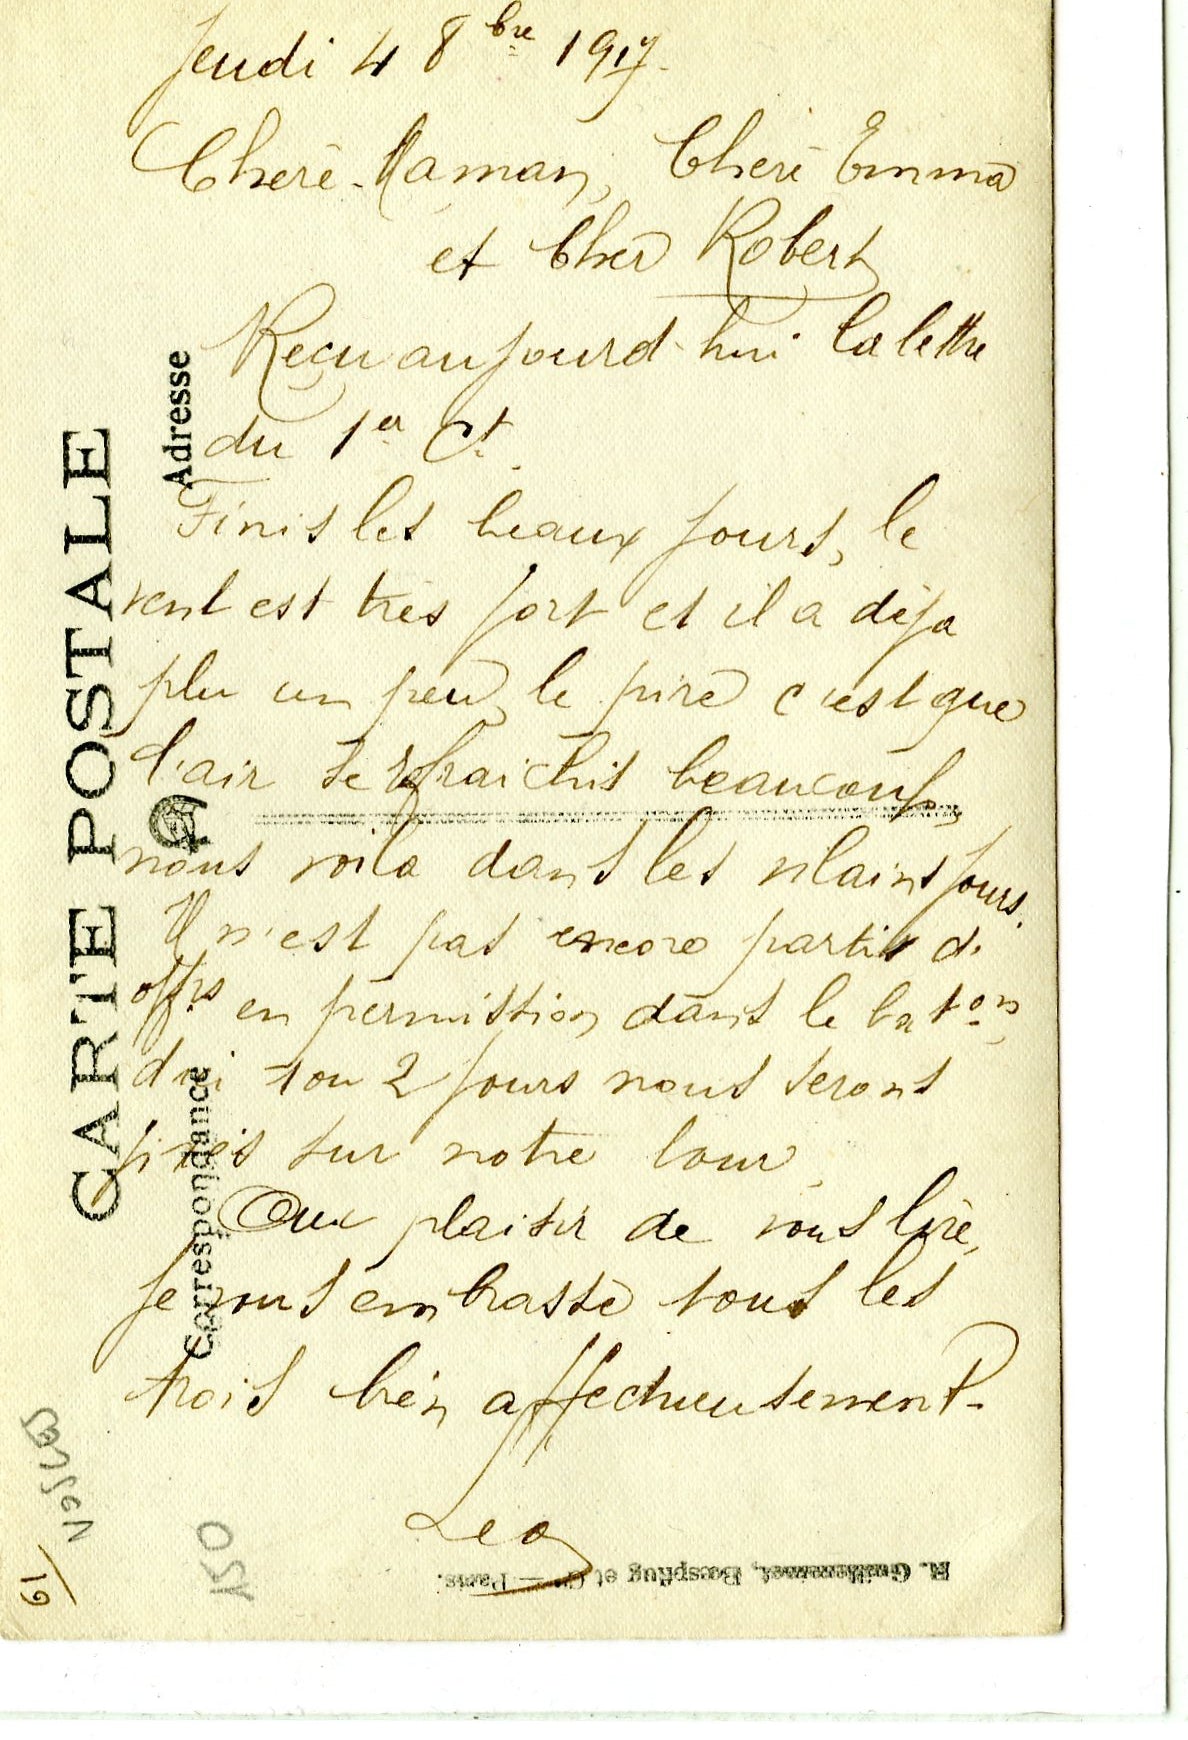 Jeudi 4 8bre 1917.
Cherè Maman, Cherè Emma
et Cher Robert
Reçu aujourd'hui la lettre
du 1er Ct.
Finis les beaux jours, le
vent est très fort et il a déja
plu un peu, le pire c'est que
l'air se rafraichis beaucoup,
nous voila dans les vilains jours.
Il n'est pas encore partis d'
offrs en permission dans le baton,
d'ici 1 ou 2 jours nous serons
fixés sur notre tour.
Aux plaisir de vous lire,
Je vous embrasse tous les
trois bien affectueusement.
Leon
CARTE POSTALE
Adresse
Correspondance
H. Guilleminot, Bœspflug et Cie — Paris.
150
19